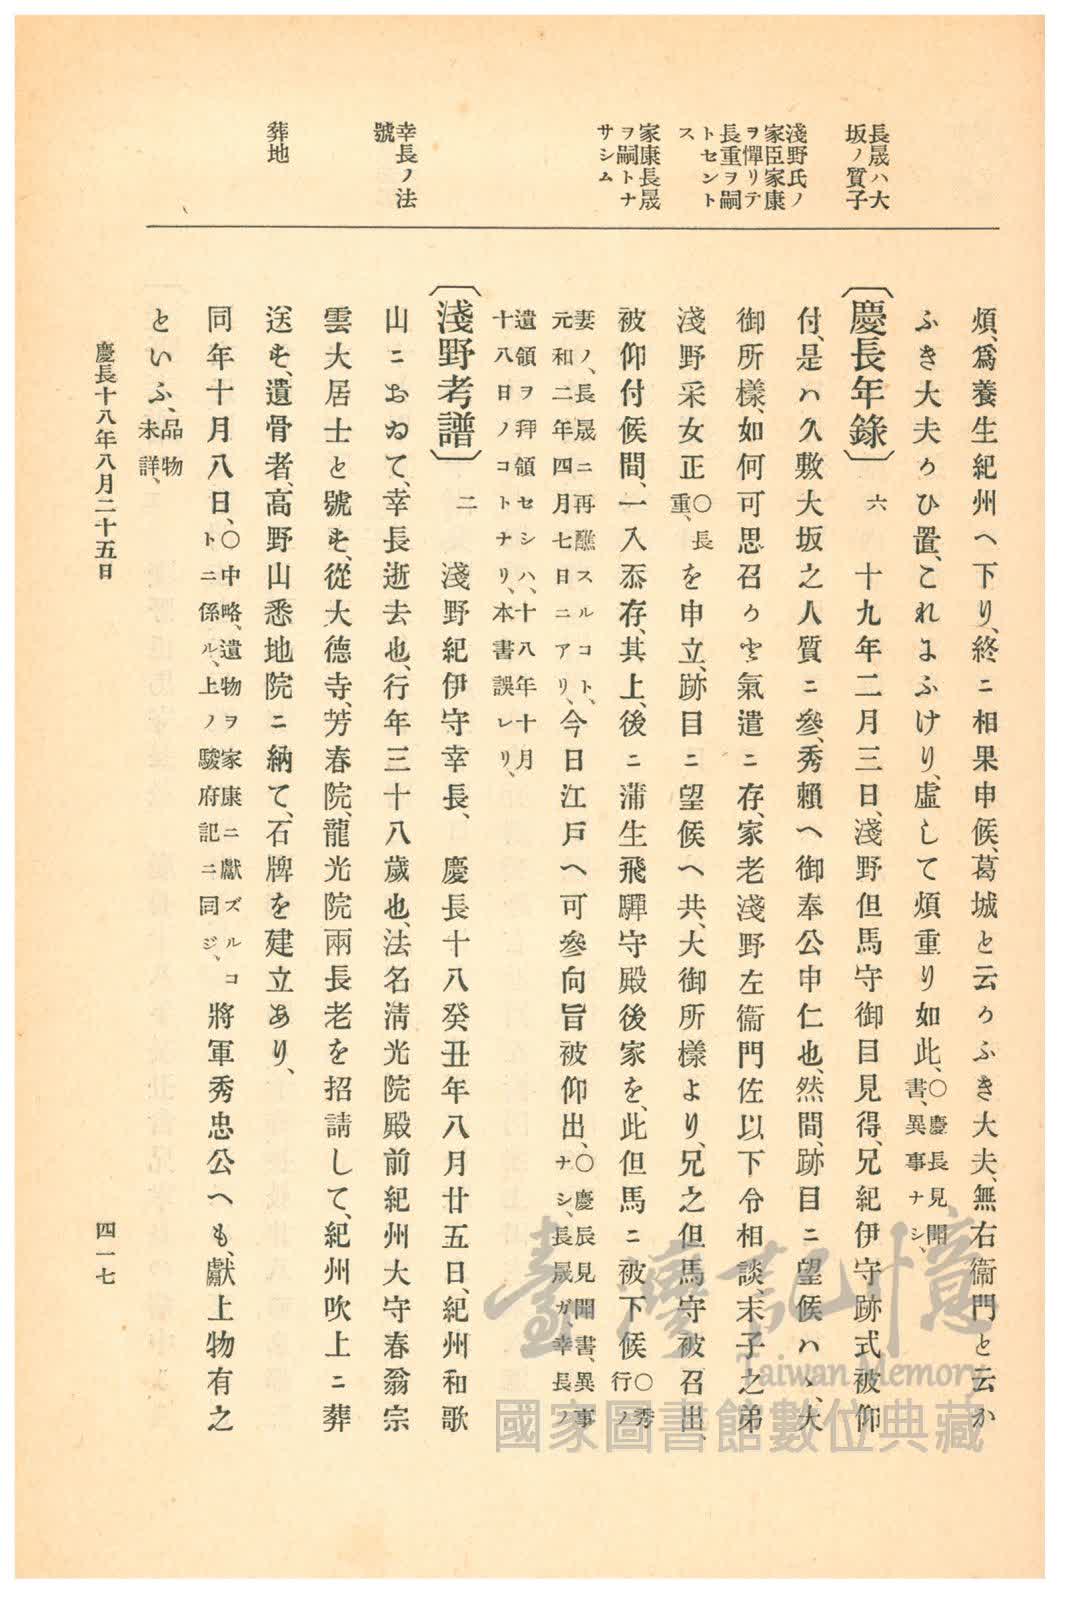 長晟ハ大
坂ノ質子
淺野氏ノ
家臣家康
ヲ憚リテ
長重ヲ嗣
トセント
ス
家康長晟
ヲ嗣トナ
サシム
幸長ノ法
號
葬地
煩、爲養生紀州へ下り、終ニ相果申候、葛城と云うふき大夫、無右衞門と云か
ふき大夫うひ置、これよふけり、虛して煩重り如此、〇慶長見聞書、異事ナシ、
〔慶長年錄〕 六 十九年二月三日、淺野但馬守御目見得、兄紀伊守跡式被仰
付、是ハ久敷大坂之人質ニ參、秀賴へ御奉公申仁也、然間、跡目ニ望候ハヽ、大
御所樣、如何可思召うと氣遣ニ存、家老淺野左衞門佐以下令相談、末子之弟
淺野采女正〇長重、を申立、跡目ニ望候へ共、大御所樣より、兄之但馬守被召出、
被仰付候間、一入忝存、其上、後ニ蒲生飛驒守殿後家を、此但馬ニ被下候〇秀行ノ
妻ノ、長晟ニ再醮スルコト、元和二年四月七日ニアリ、今日江戸へ可參向旨被仰出、〇慶辰見聞書、異事ナシ、長晟ガ、幸長ノ
遺領ヲ拜領セシハ、十八年十月十八日ノコトナリ、本書誤レリ、
〔淺野考譜〕 二 淺野紀伊守幸長、 慶長十八癸丑年八月廿五日、紀州和歌
山ニおゐて、幸長逝去也、行年三十八歲也、法名淸光院殿前紀州大守春翁宗
雲大居士と號を、從大德寺、芳春院、龍光院兩長老を招請して、紀州吹上ニ葬
送を、遺骨者、高野山悉地院ニ納て、石牌を建立あり、
同年十月八日、〇中略、遺物ヲ家康ニ獻ズルコトニ係ル、上ノ駿府記ニ同ジ、將軍秀忠公へも、獻上物有之
といふ、品物未詳、
慶長十八年八月二十五日
四一七
臺灣記憶
Taiwan Memory
國家圖書館數位典藏